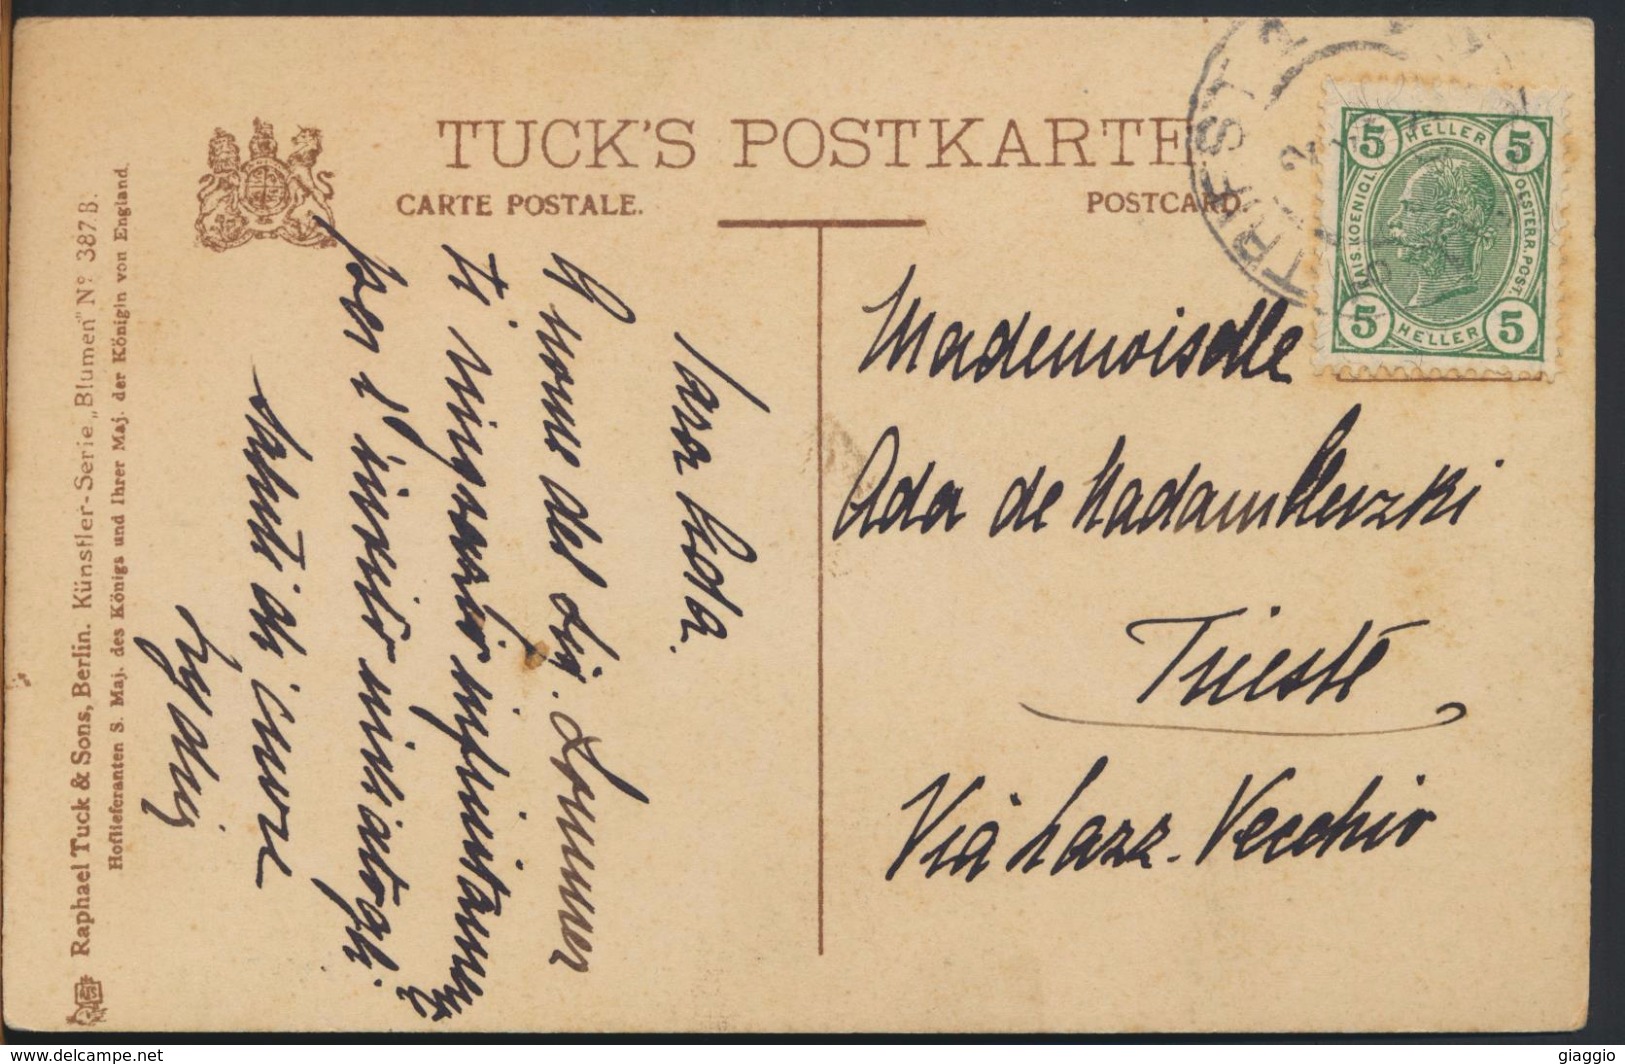 TUCK'S POSTKARTE
CARTE POSTALE.
POSTCARD.
5 HELLER 5
KAIS. KOENIGL.
OESTERR. POST.
5 HELLER 5
TRIEST 2
Mademoiselle
Ada de
Trieste
Via Lazz. Vecchio
Cara
A nome del Sig. Sommer
ti ringrazio infinitamente
per l'invio
saluti di cuore
Raphael Tuck & Sons, Berlin. Künstler-Serie „Blumen" Nº 387. B.
Hoflieferanten S. Maj. des Königs und Ihrer Maj. der Königin von England.
giaggio